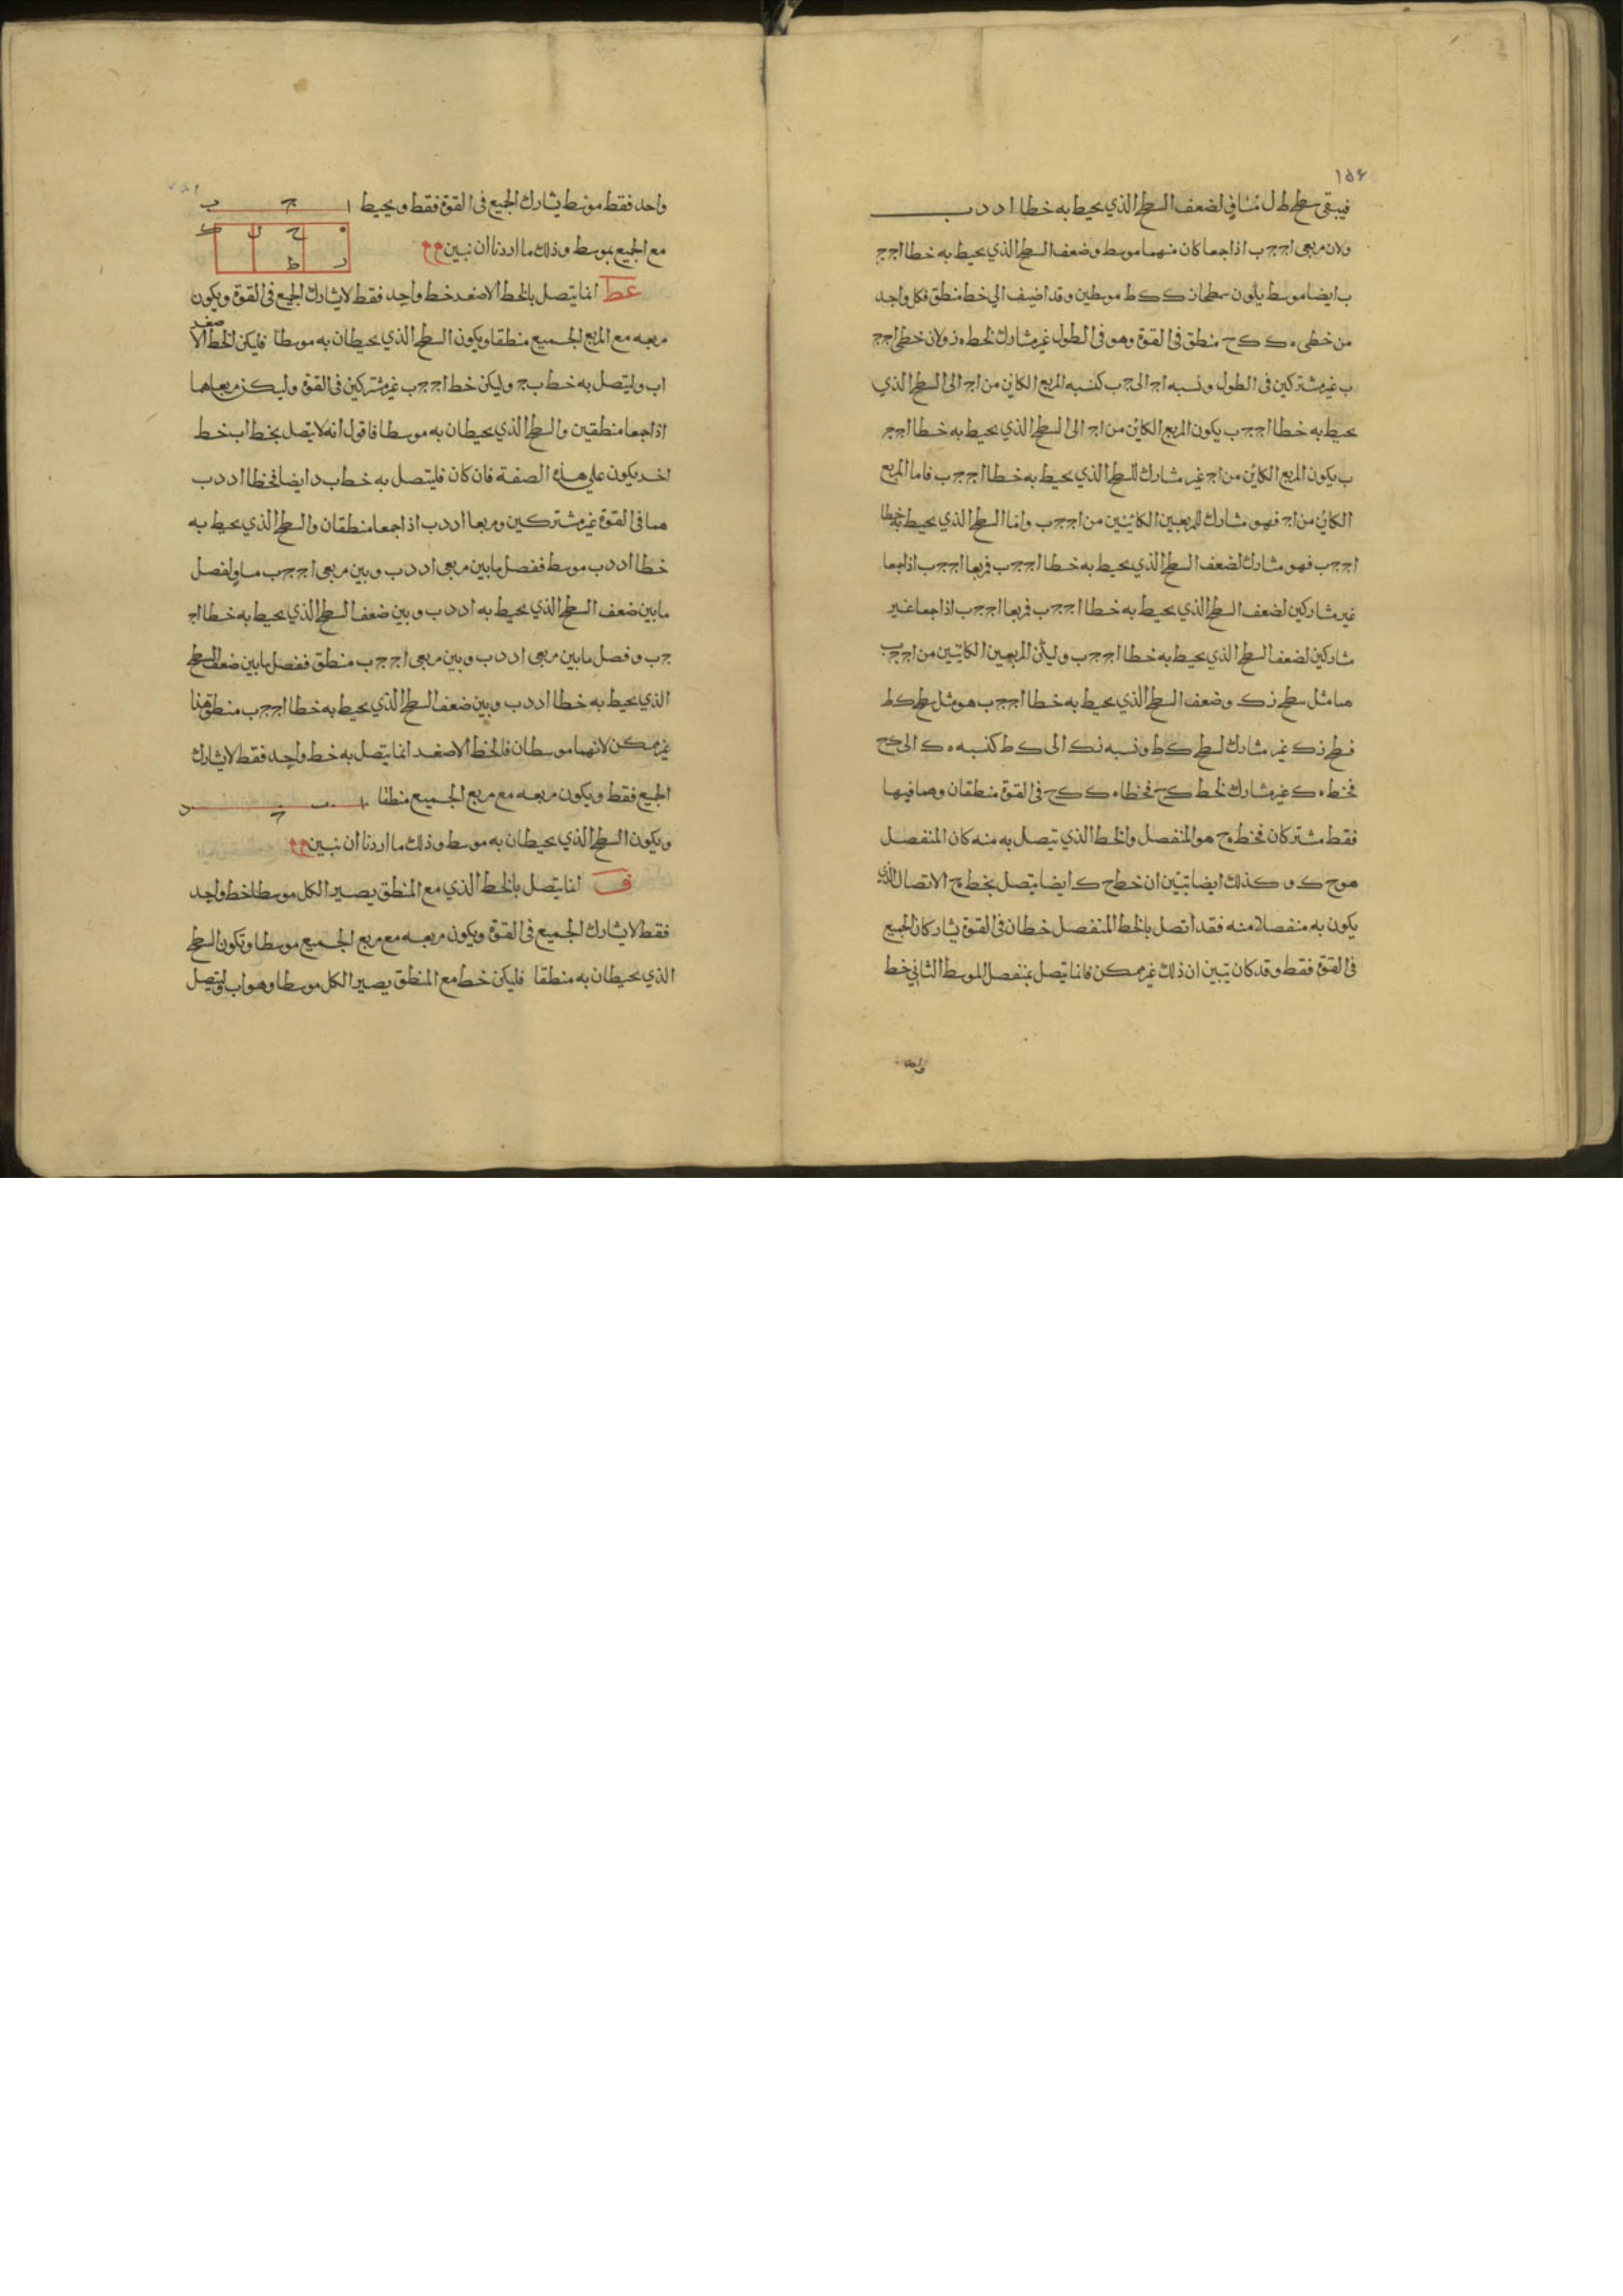 ١٥٤
فيبقى سطح ط ل مساوي لضعف السطح الذي يحيط به خطا ا د د ب
ولان مربعي ا ج ج ب اذا جمعا كان منهما موسط وضعف السطح الذي يحيط به خطا ا ج ج
ب ايضا موسط يكون سطحا ز ك ك ط موسطين وقد اضيف الي خط منطق فكل واحد
من خطي ه ك ك ح منطق في القوة وهو في الطول غير مشارك لخط ه ز ولان خطي ا ج ج
ب غير مشتركين في الطول ونسبه ا ج الى ج ب كنسبه المربع الكاين من ا ج الى السطح الذي
يحيط به خطا ا ج ج ب يكون المربع الكاين من ا ج الى السطح الذي يحيط به خطا ا ج ج
ب يكون المربع الكاين من ا ج غير مشارك للسطح الذي يحيط به خطا ا ج ج ب فاما المربع
الكاين من ا ج فهو مشارك للمربعين الكاينين من ا ج ج ب واما السطح الذي يحيط به خطا
ا ج ج ب فهو مشارك لضعف السطح الذي يحيط به خطا ا ج ج ب فمربعا ا ج ج ب اذا جمعا
غير مشاركين لضعف السطح الذي يحيط به خطا ا ج ج ب فمربعا ا ج ج ب اذا جمعا غير
مشاركين لضعف السطح الذي يحيط به خطا ا ج ج ب وليكن المربعين الكاينين من ا ج ج ب
هما مثل سطح ز ك وضعف السطح الذي يحيط به خطا ا ج ج ب هو مثل سطح ك ط
فسطح ز ك غير مشارك لسطح ك ط ونسبه ز ك الى ك ط كنسبه ه ك الى ك ح
فخط ه ك غير مشارك لخط ك ح فخطا ه ك ك ح في القوة منطقان وهما فيها
فقط مشتركان فخط ه ح هو المنفصل والخط الذي يتصل به منه كان المنفصل
هو ح ك و كذلك ايضا تبين ان خط ح ك ايضا يتصل بخط ه ح الاتصال الذي
يكون به منفصلا منه فقد اتصل بالخط المنفصل خطان في القوة يشاركان الجميع
في القوة فقط وقد كان تبين ان ذلك غير ممكن فانما يتصل بمنفصل الموسط الثاني خط
واحد
واحد فقط موسط يشارك الجميع في القوة فقط ويحيط
مع الجميع بموسط وذلك ما اردنا ان نبين
ا ج ب
ه ح ل ك
ر ط
عط انما يتصل بالخط الاصغر خط واحد فقط لا يشارك الجميع في القوة ويكون
مربعه مع المربع الجميع منطقا ويكون السطح الذي يحيطان به موسطا فليكن الخط الاصغر
ا ب وليتصل به خط ب ج وليكن خط ا ج ج ب غير مشتركين في القوة وليكن مربعاهما
اذا جمعا منطقين والسطح الذي يحيطان به موسطا فاقول انه لا يتصل بخط ا ب خط
اخر يكون على هذه الصفة فان كان فليتصل به خط ب د ايضا فخطا ا د د ب
هما في القوة غير مشتركين ومربعا ا د د ب اذا جمعا منطقان والسطح الذي يحيط به
خطا ا د د ب موسط ففصل ما بين مربعي ا د د ب وبين مربعي ا ج ج ب مساو لفصل
ما بين ضعف السطح الذي يحيط به ا د د ب وبين ضعف السطح الذي يحيط به خطا ا ج
ج ب وفصل ما بين مربعي ا د د ب وبين مربعي ا ج ج ب منطق ففصل ما بين ضعف السطح
الذي يحيط به خطا ا د د ب وبين ضعف السطح الذي يحيط به خطا ا ج ج ب منطق هذا
غير ممكن لانهما موسطان فالخط الاصغر انما يتصل به خط واحد فقط لا يشارك
الجميع فقط ويكون مربعه مع مربع الجميع منطقا
ا ب ج د
ويكون السطح الذي يحيطان به موسط وذلك ما اردنا ان نبين
ف انما يتصل بالخط الذي مع المنطق يصير الكل موسطا خط واحد
فقط لا يشارك الجميع في القوة ويكون مربعه مع مربع الجميع موسطا وتكون السطح
الذي يحيطان به منطقا فليكن خط مع المنطق يصير الكل موسطا وهو ا ب وليتصل